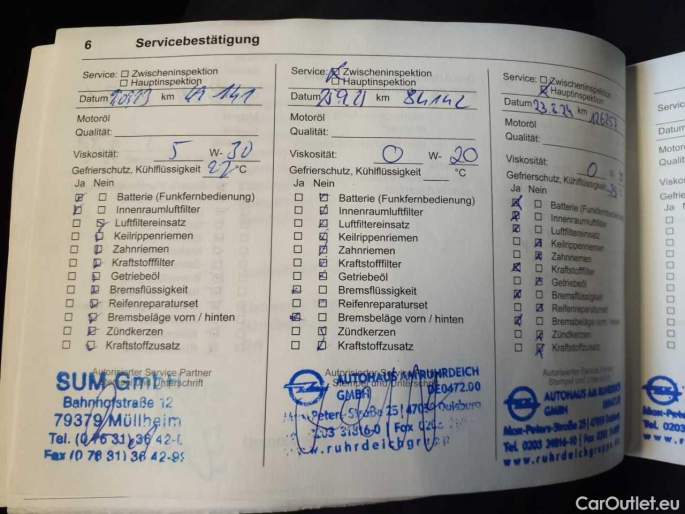 6 Servicebestätigung
Service: Zwischeninspektion
Hauptinspektion
Datum km 49 141
Motoröl
Qualität:
Viskosität: 5 W- 30
Gefrierschutz, Kühlflüssigkeit °C
Ja Nein
Batterie (Funkfernbedienung)
Innenraumluftfilter
Luftfiltereinsatz
Keilrippenriemen
Zahnriemen
Kraftstofffilter
Getriebeöl
Bremsflüssigkeit
Reifenreparaturset
Bremsbeläge vorn / hinten
Zündkerzen
Kraftstoffzusatz
Autorisierter Service Partner
SUM GmbH
Bahnhofstraße 12
79379 Müllheim
Tel. (0 76 31) 36 42-
Fax (0 76 31) 36 42-99
Service: Zwischeninspektion
Hauptinspektion
Datum km 84142
Motoröl
Qualität:
Viskosität: 0 W- 20
Gefrierschutz, Kühlflüssigkeit °C
Ja Nein
Batterie (Funkfernbedienung)
Innenraumluftfilter
Luftfiltereinsatz
Keilrippenriemen
Zahnriemen
Kraftstofffilter
Getriebeöl
Bremsflüssigkeit
Reifenreparaturset
Bremsbeläge vorn / hinten
Zündkerzen
Kraftstoffzusatz
Autorisierter Service
AUTOHAUS AM RUHRDEICH
GMBH DE0472.00
Peters-Straße 25 | 47059 Duisburg
203 31816-0 | Fox
www.ruhrdeichgruppe
Service: Zwischeninspektion
Hauptinspektion
Datum 23.8.24 km
Motoröl
Qualität:
Viskosität: 0
Gefrierschutz, Kühlflüssigkeit
Ja Nein
Batterie (Funkfernbedienung)
Innenraumluftfilter
Luftfiltereinsatz
Keilrippenriemen
Zahnriemen
Kraftstofffilter
Getriebeöl
Bremsflüssigkeit
Reifenreparaturset
Bremsbeläge vorn / hinten
Zündkerzen
Kraftstoffzusatz
AUTOHAUS AM RUHRDEICH
GMBH
Max-Peters-Straße 25 |
Tel. 0203 31816-10 | Fax
www.ruhrdeichgruppe
Service
Datum
Motoröl
Ja
Tel. 0203
CarOutlet.eu